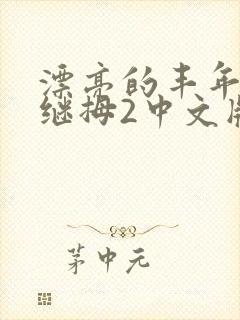 漂亮的丰年
继拇2中文版
茅中元